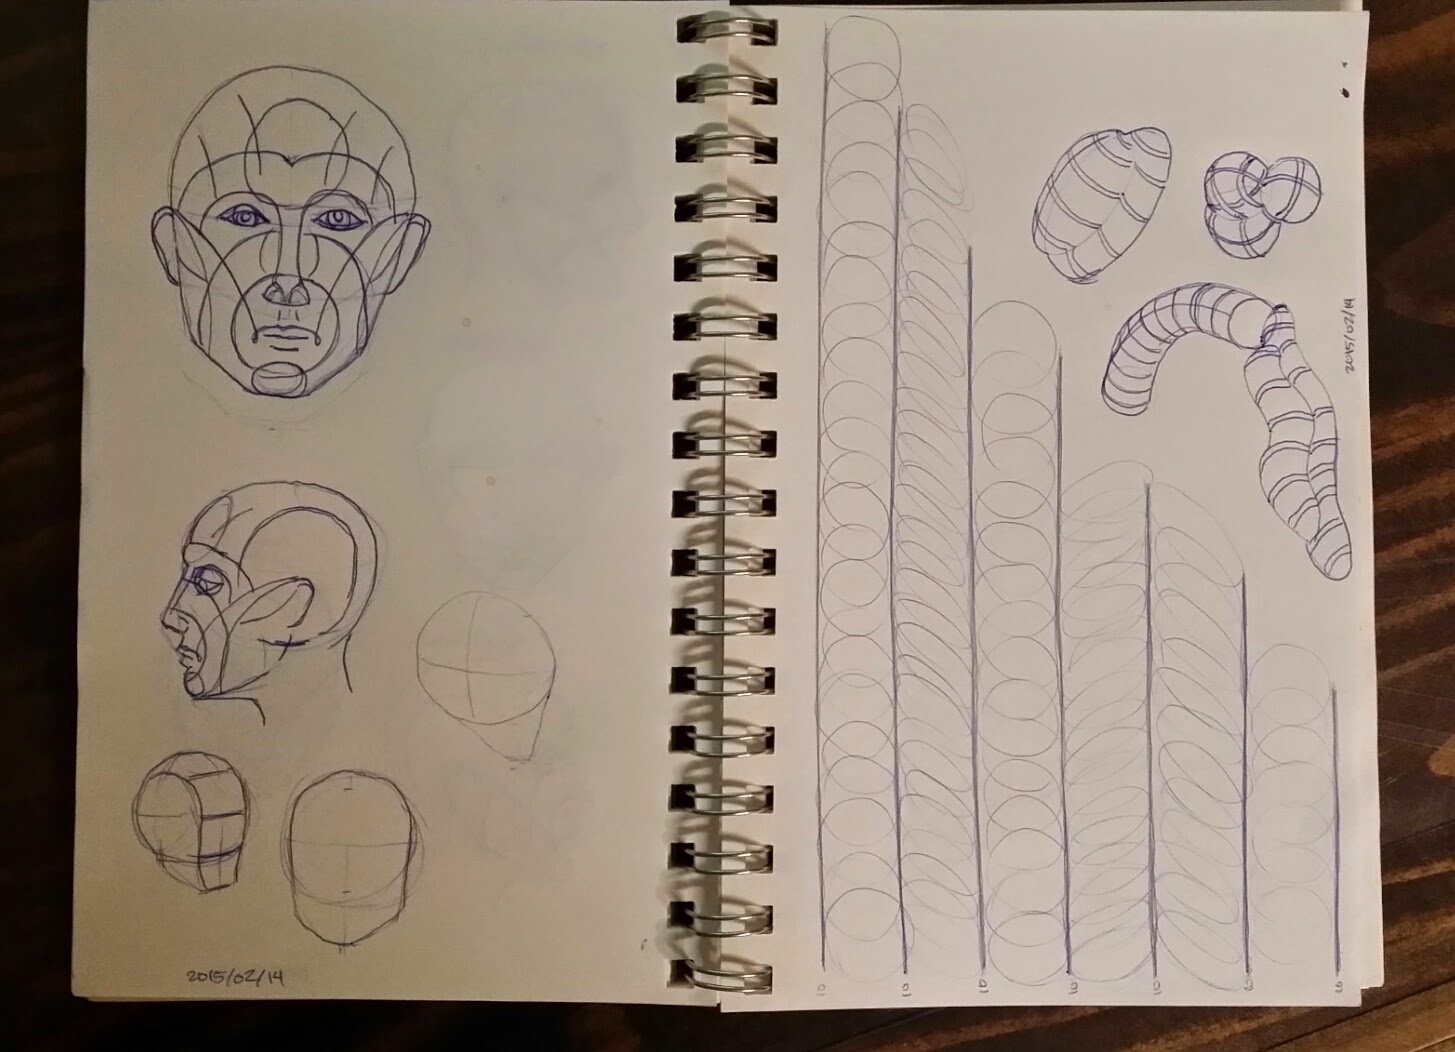 2015/02/14
2015/02/14
10
10
10
10
10
20
20